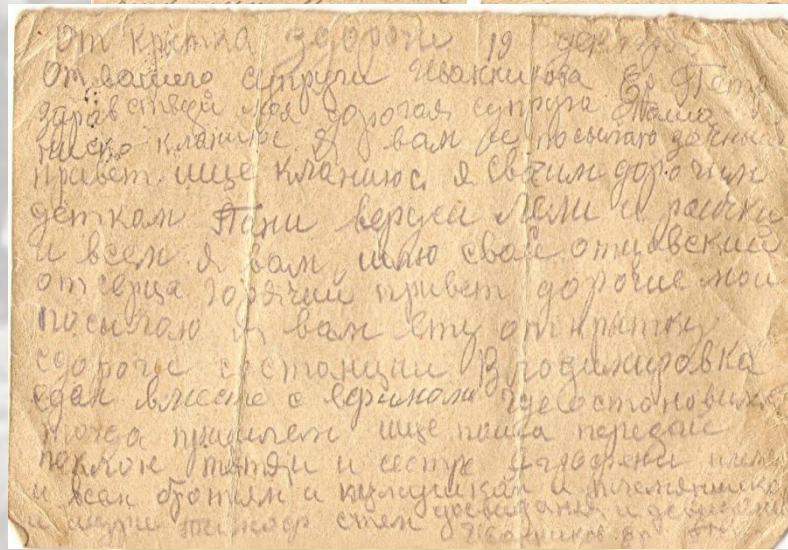 Открытка здороги 19 декабря
От вашего супруга Иванникова Ер Петр
здравствуй моя дорогая супруга
ниско кланиюс я вам и посылаю
привет ище кланиюс я своим дорогим
деткам Тани веруси Лели и раички
и всем я вам шлю свой отцавский
от серца горячий привет дорогие мои
посылаю я вам ету открытку
сдороги состанции Владимировка
едем вместе с ефимом где остановимся
тогда пришлем ище письма передай
поклон тяти и сестре
и всем братям и и племянникам
и стем досвидания
Иванников Ер